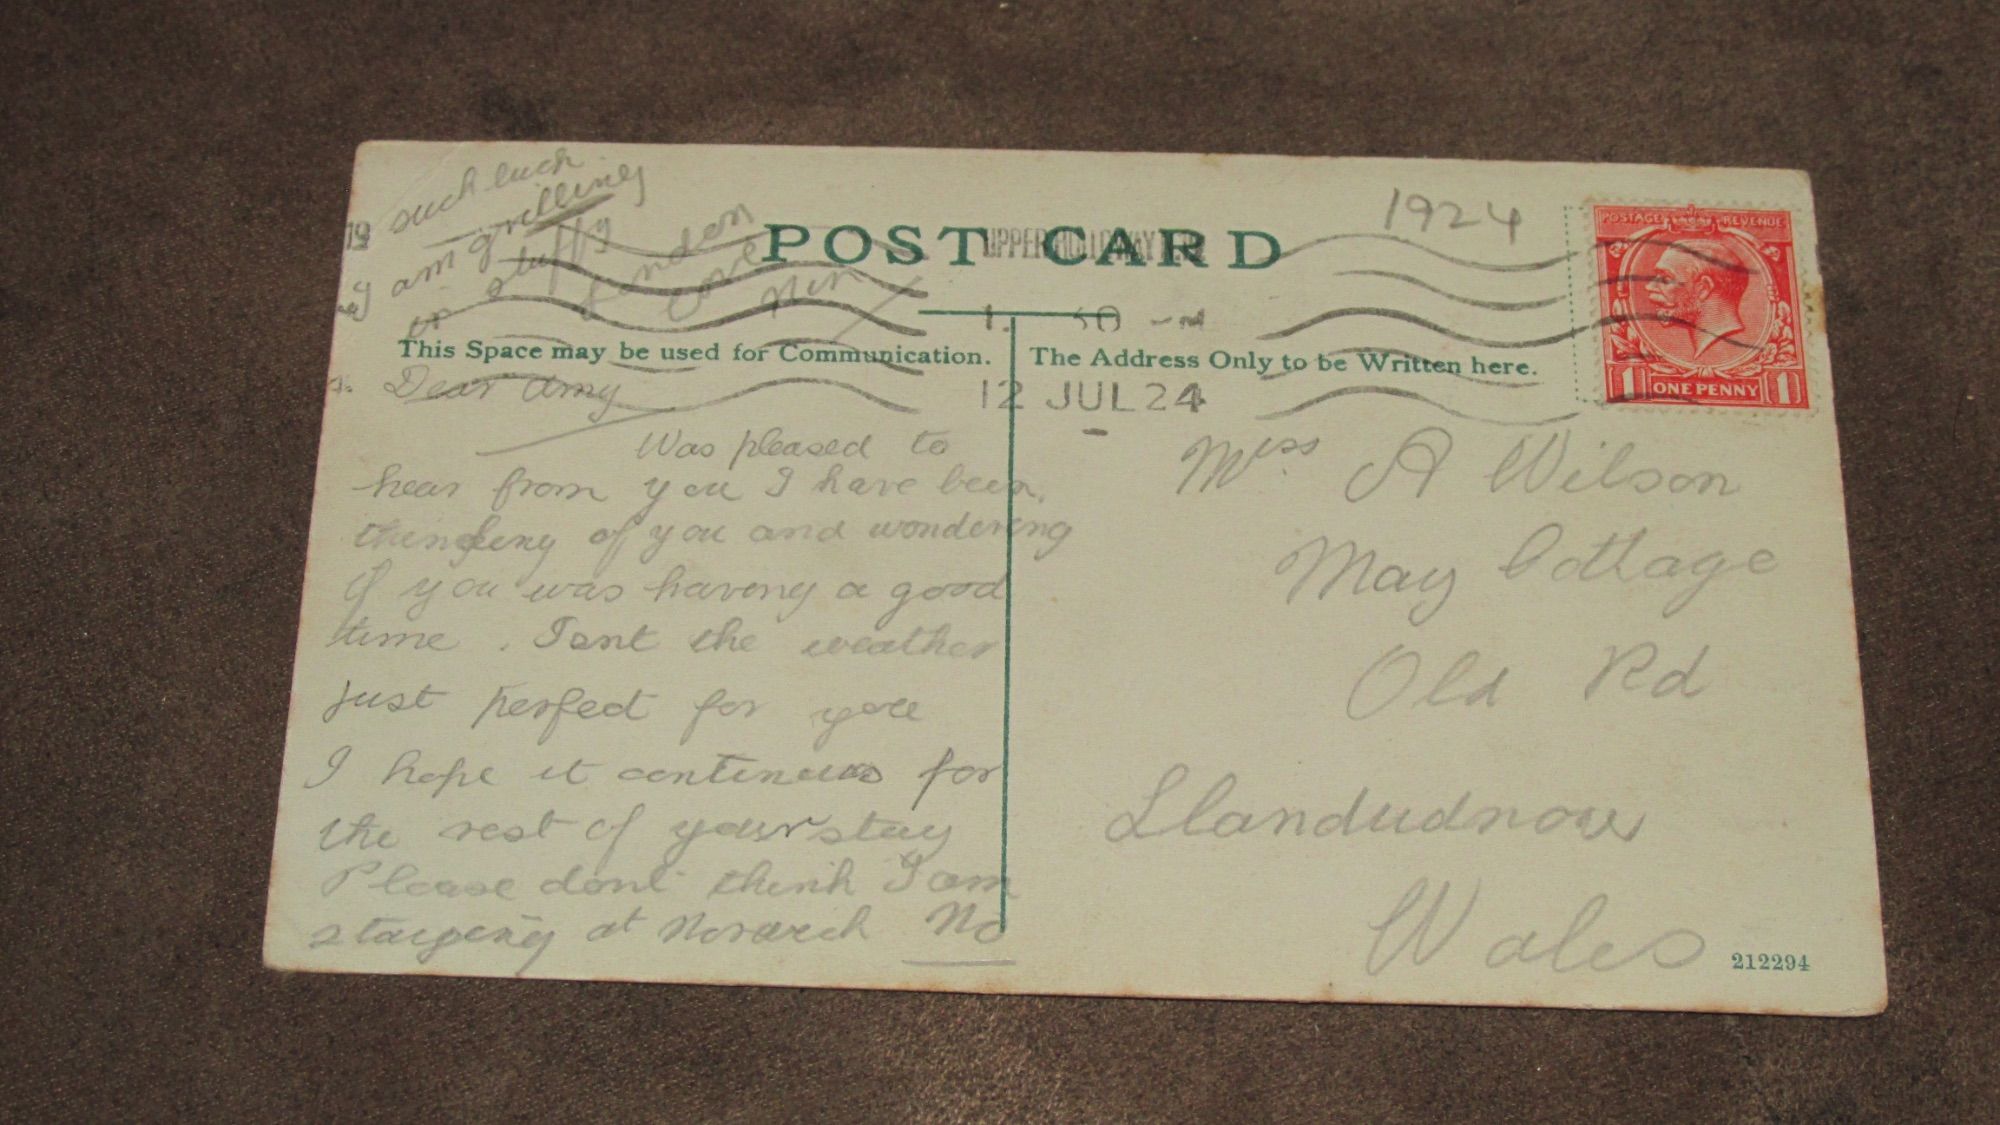 such luck
am grilling
in stuffy
London
love
Min
1924
POSTAGE REVENUE
POST CARD
UPPER HOLLOWAY
12 JUL 24
ONE PENNY
1 1
This Space may be used for Communication.
The Address Only to be Written here.
Dear Amy
Was pleased to
hear from you I have been
thinking of you and wondering
if you was having a good
time. Isnt the weather
just perfect for you
I hope it continues for
the rest of your stay
Please dont think I am
staying at Norwich No
Miss A Wilson
May Cottage
Old Rd
Llandudnow
Wales
212294